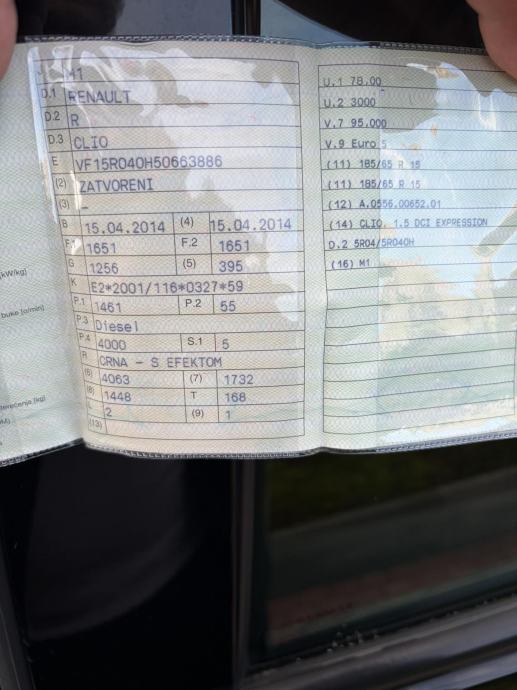 J M1
D.1 RENAULT
D.2 R
D.3 CLIO
E VF15R040H50663886
(2) ZATVORENI
(3) –
B 15.04.2014 (4) 15.04.2014
F.1 1651 F.2 1651
G 1256 (5) 395
K E2*2001/116*0327*59
P.1 1461 P.2 55
P.3 Diesel
P.4 4000 S.1 5
R CRNA - S EFEKTOM
(6) 4063 (7) 1732
(8) 1448 T 168
L 2 (9) 1
(13)
[kW/kg]
buke [o/min]
terećenje [kg]
U.1 78.00
U.2 3000
V.7 95.000
V.9 Euro 5
(11) 185/65 R 15
(11) 185/65 R 15
(12) A.0556.00652.01
(14) CLIO 1.5 DCI EXPRESSION
D.2 5R04/5R040H
(16) M1